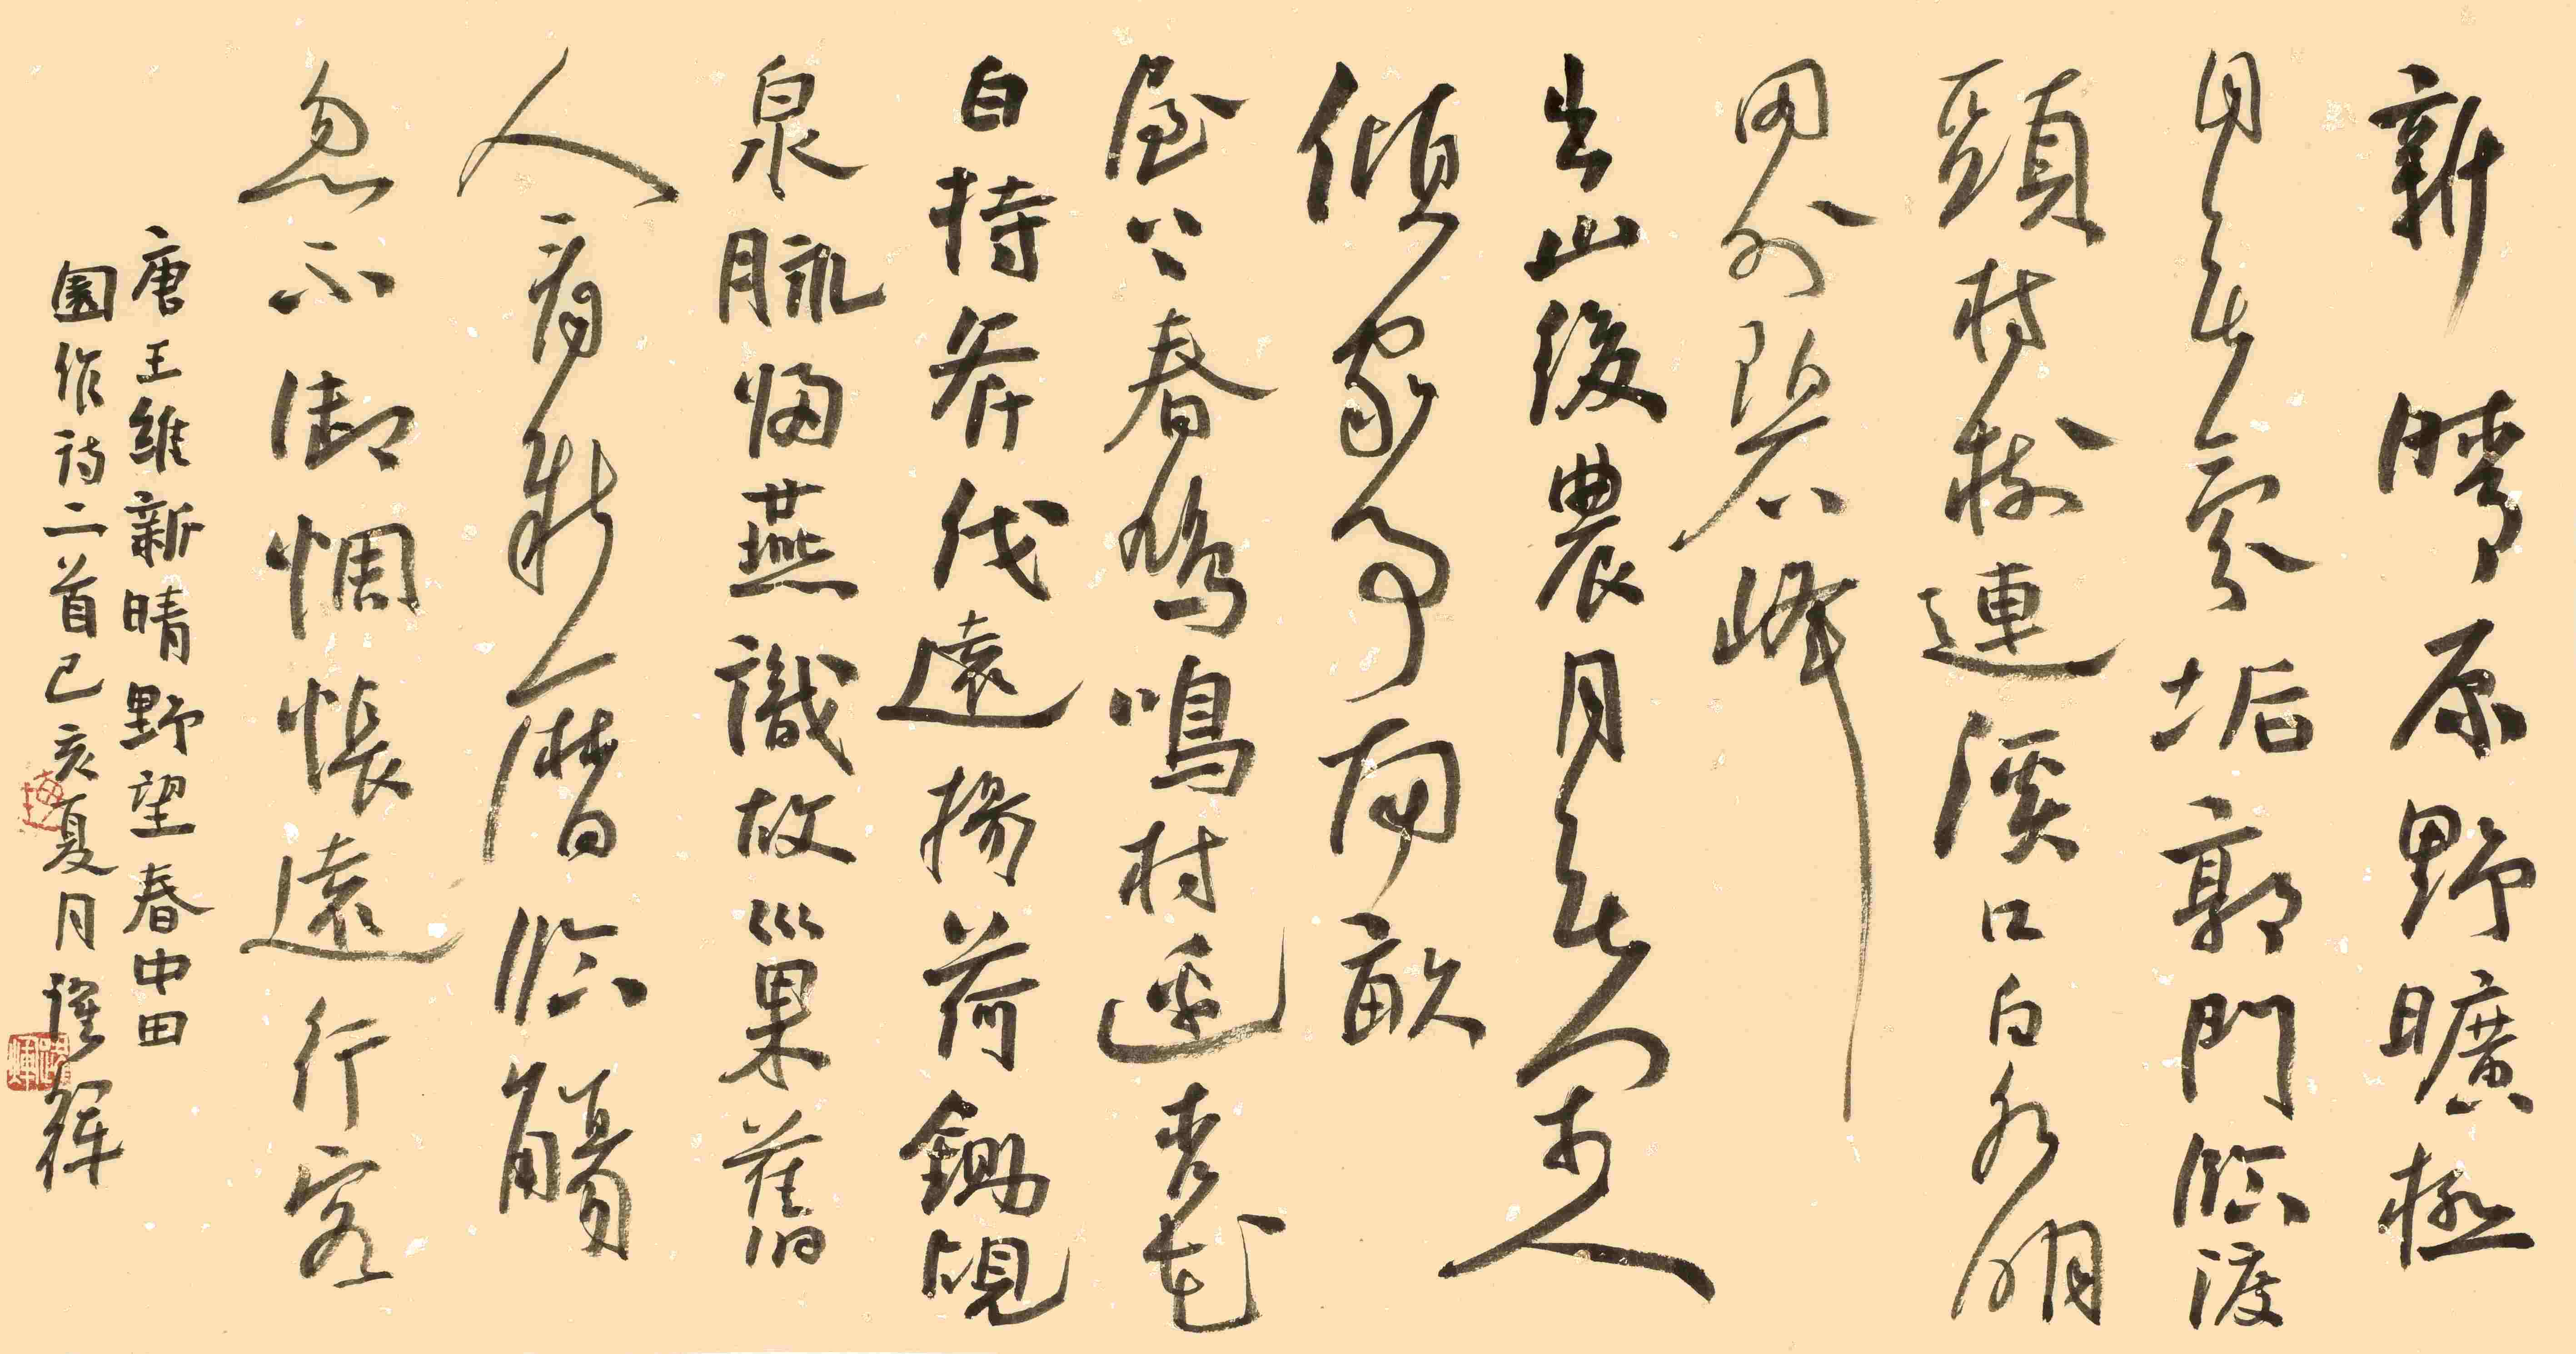 新晴原野曠極
目無氛垢郭門臨渡
頭村樹連溪口白水明
田外碧峰
出山後農月無閑人
傾家事南畝
屋上春鳩鳴村邊杏花
白持斧伐遠揚荷鋤覘
泉脉歸燕識故巢舊
人看新曆臨觴
忽不御惆悵遠行客
唐王維新晴野望春中田
園作詩二首己亥夏月謹輝